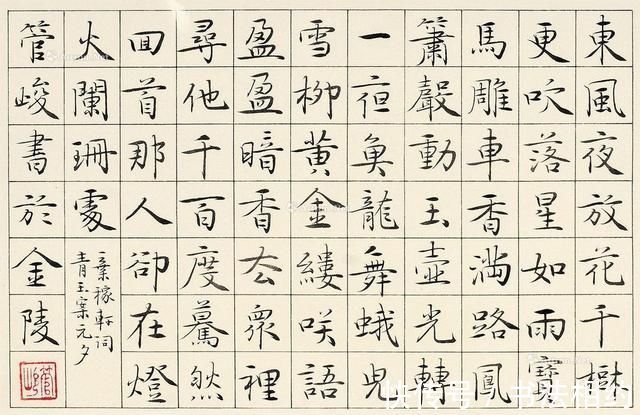 東風夜放花千樹
更吹落星如雨寶
馬雕車香滿路鳳
簫聲動玉壺光轉
一夜魚龍舞蛾兒
雪柳黃金縷咲語
盈盈暗香去眾裡
尋他千百度驀然
回首那人卻在燈
火闌珊處
辛稼軒詞
青玉案元夕
管峻書於金陵
快传号/书法相约